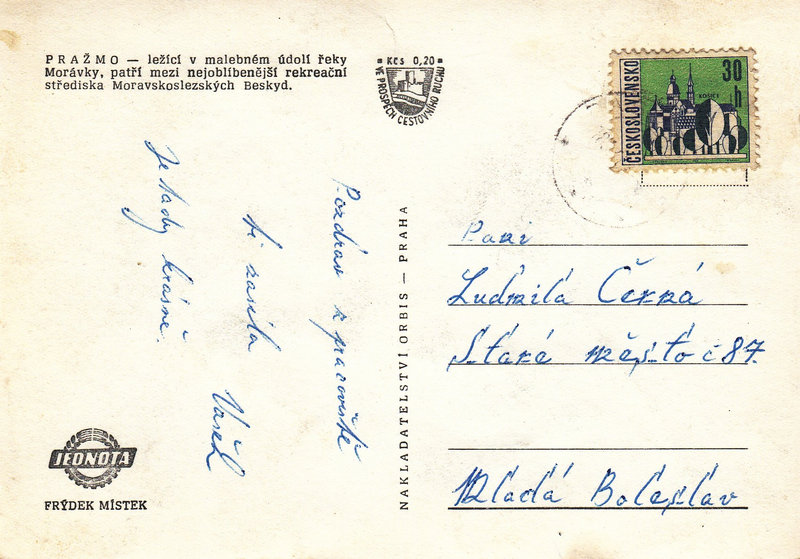 PRAŽMO — ležící v malebném údolí řeky
Morávky, patří mezi nejoblíbenější rekreační
střediska Moravskoslezských Beskyd.
Kčs 0,20
VE PROSPĚCH CESTOVNÍHO RUCHU
ČESKOSLOVENSKO
30
h
KOŠICE
Pozdrav z pracoviště
ti zasílá Vašek
Je tady krásně.
NAKLADATELSTVÍ ORBIS — PRAHA
Paní
Ludmila Černá
Staré město č 87
Mladá Boleslav
JEDNOTA
FRÝDEK MÍSTEK